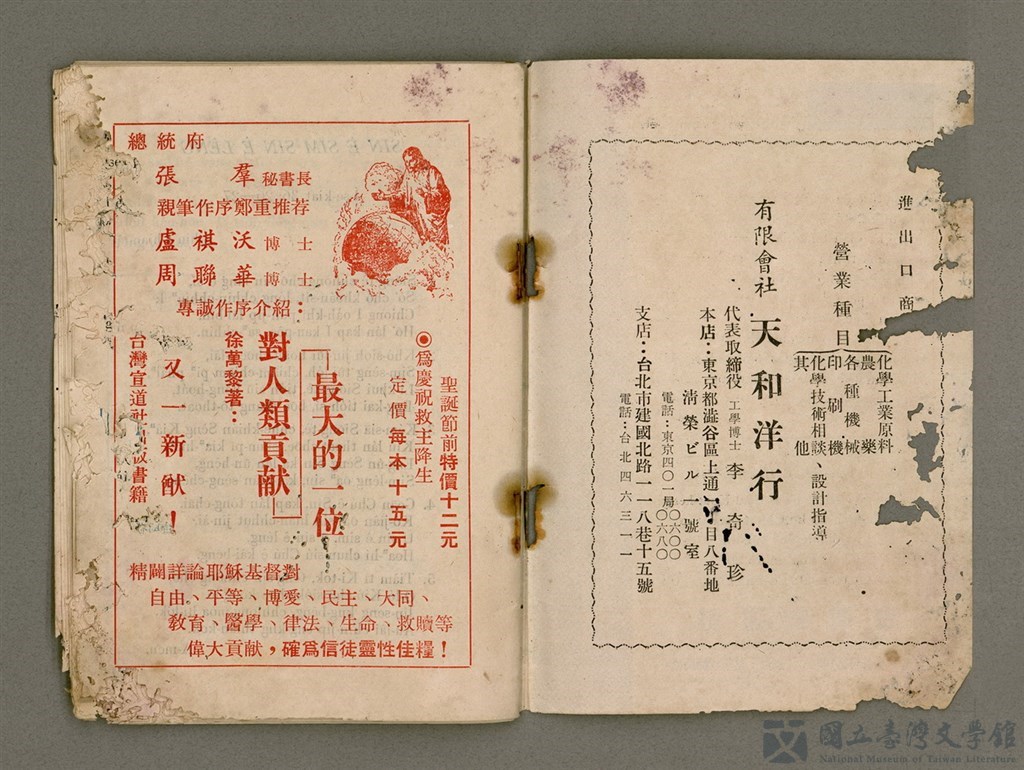 總統府
張羣秘書長
親筆作序鄭重推荐
盧祺沃博士
周聯華博士
專誠作序介紹：
聖誕節前特價十二元
◉爲慶祝救主降生
定價每本十五元
「最大的一位
對人類貢献」
徐萬黎著：
又一新猷！
台灣宣道社 書籍
精闢詳論耶穌基督對
自由、平等、博愛、民主、大同、
敎育、醫學、律法、生命、救贖等
偉大貢献，確爲信徒靈性佳糧！
進出口商
營業種目
化學工業原料
農藥
各種機械
印刷機
化學技術相談、設計指導
其他
有限會社 天和洋行
代表取締役 工學博士 李奇珍
本店：東京都澁谷區上通 目八番地
淸榮ビル一號室
電話：東京四〇一局〇六〇〇
〇六八〇
支店：台北市建國北路一一八巷十五號
電話：台北四六三一一
國立臺灣文學館
National Museum of Taiwan Literature